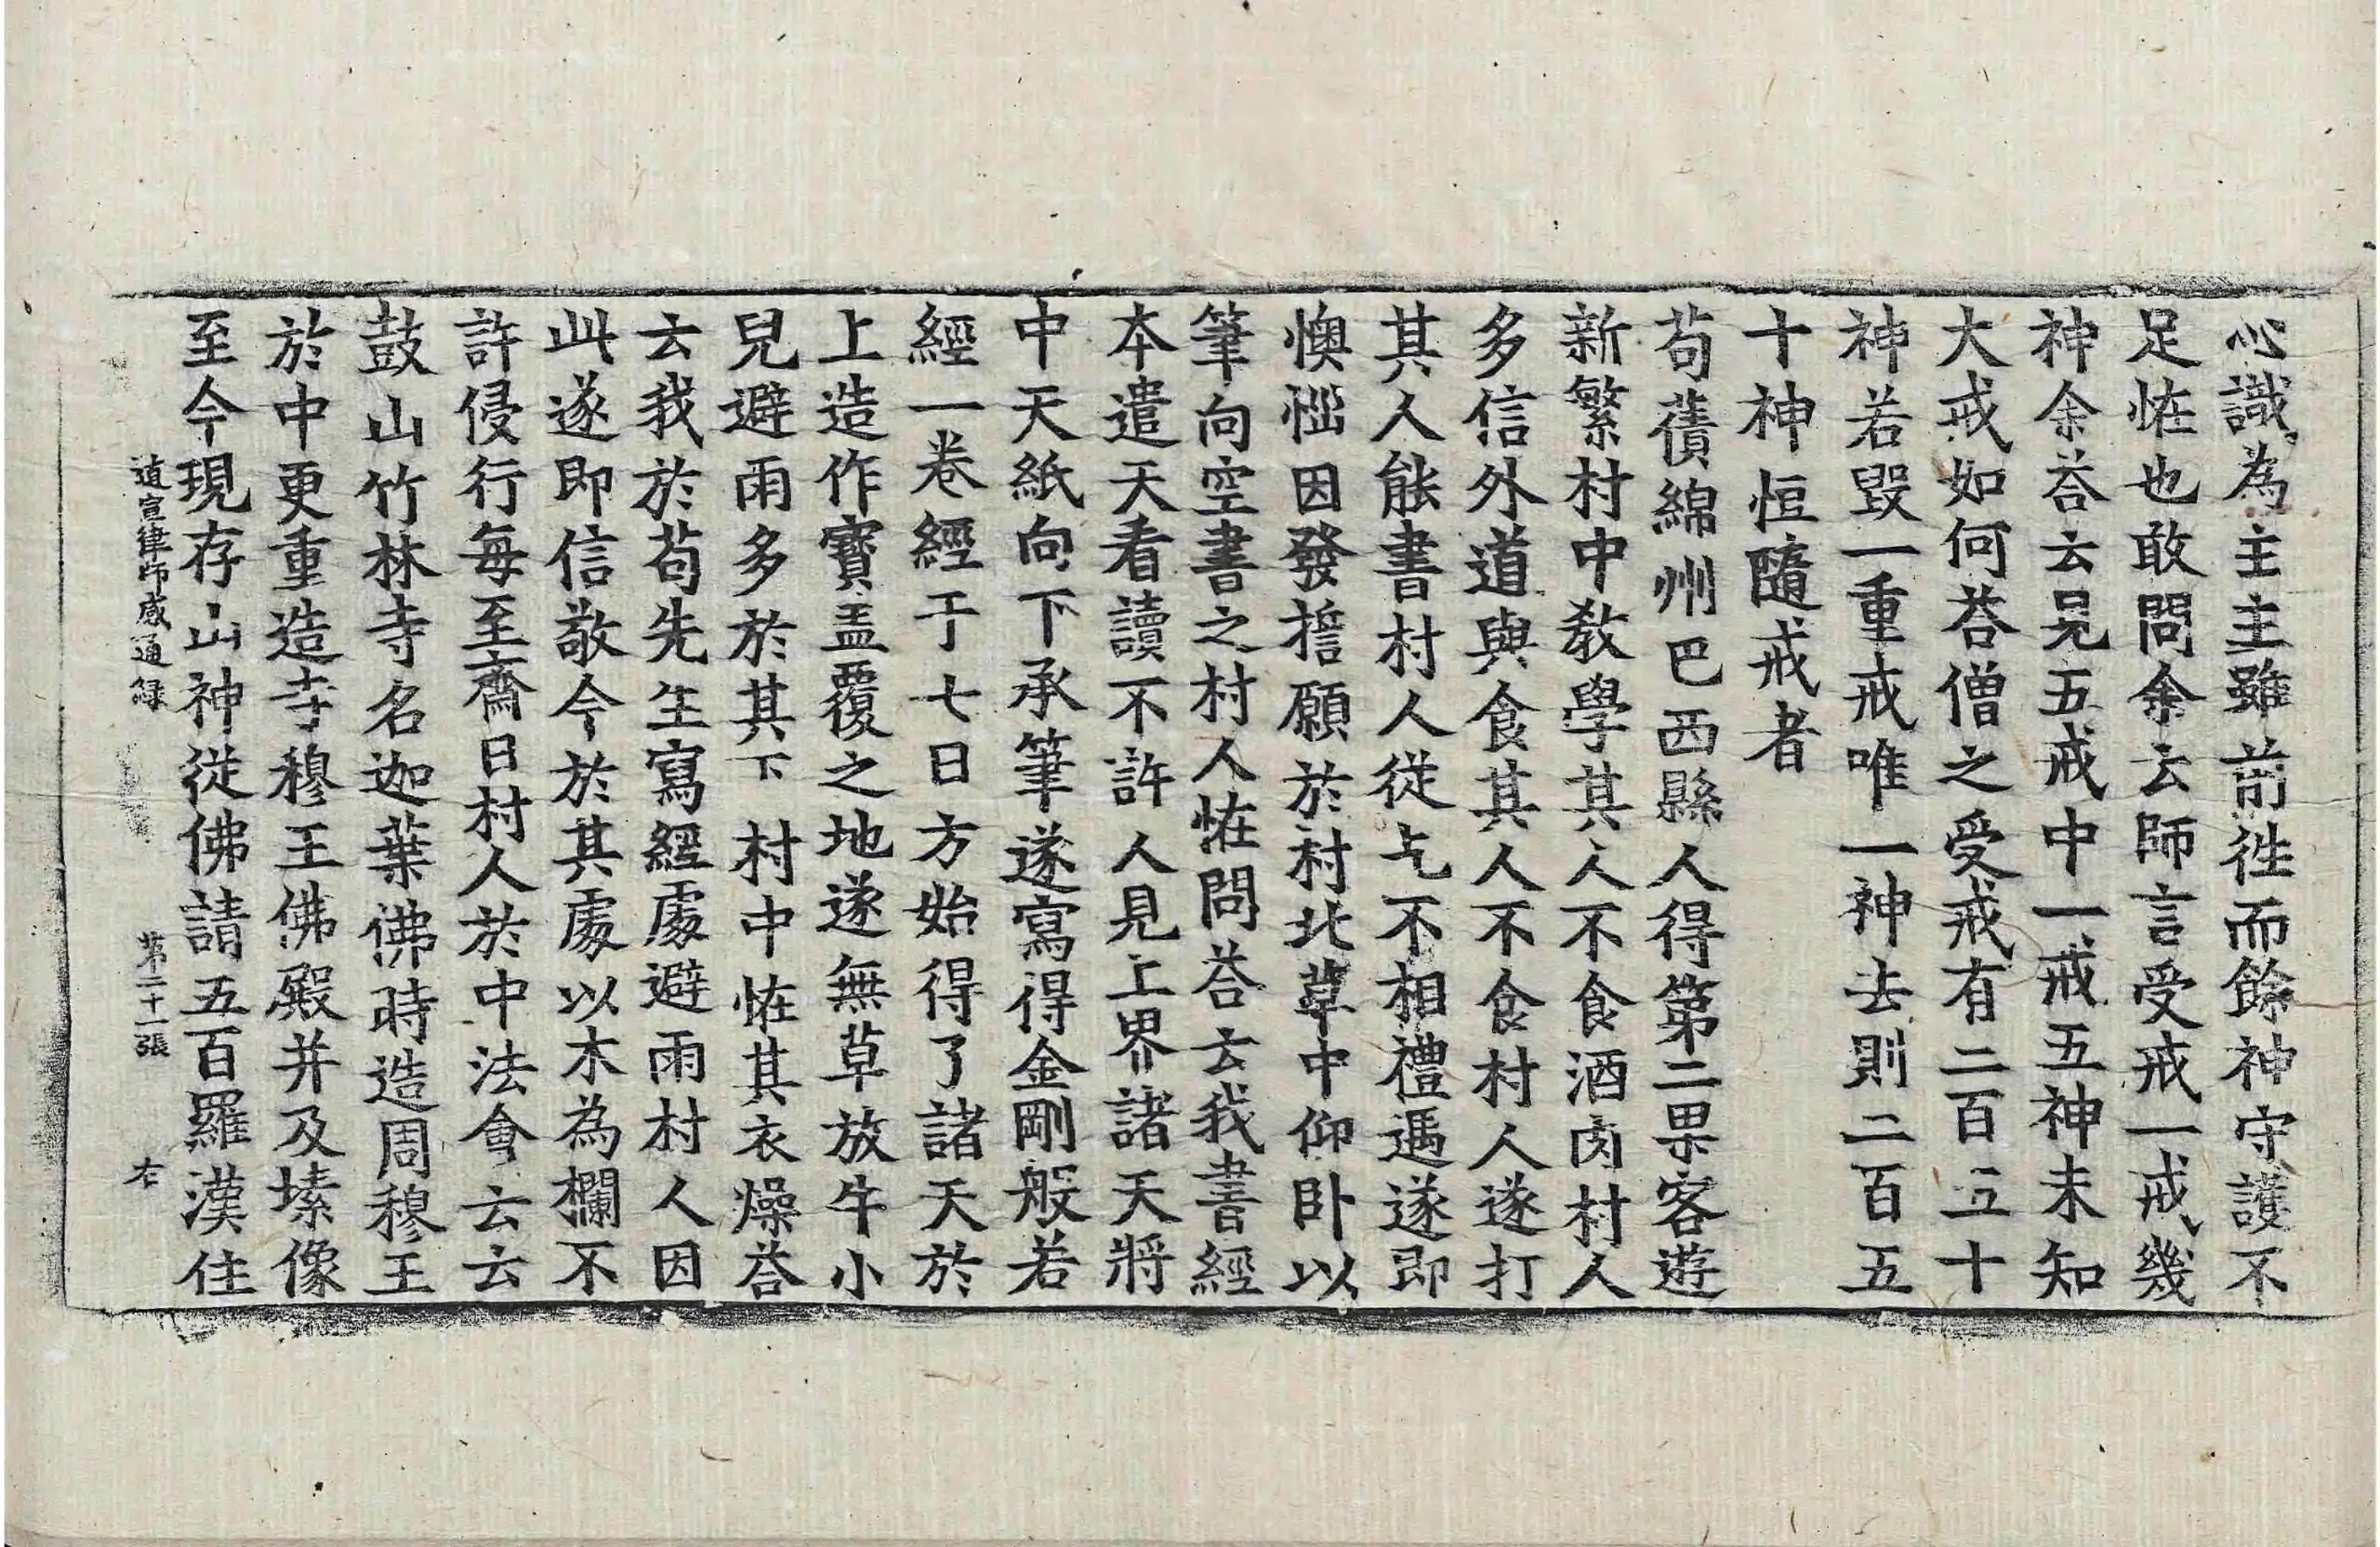 心識為主主雖前徃而餘神守護不
足恠也敢問余云師言受戒一戒幾
神余荅云晃五戒中一戒五神未知
大戒如何荅僧之受戒有二百五十
神若毀一重戒唯一神去則二百五
十神恒隨戒者
茍蕢綿州巴西縣人得第二果客遊
新繁村中教學其人不食酒肉村人
多信外道與食其人不食村人遂打
其人能書村人從乞不相禮遇遂即
懊惱因發擔願於村北草中仰卧以
筆向空書之村人恠問荅云我書經
本遣天看讀不許人見上界諸天將
中天紙向下承筆遂寫得金剛般若
經一卷經于七日方始得了諸天於
上造作寶盖覆之地遂無草放牛小
兒避雨多於其下村中恠其衣燥荅
云我於茍先生寫經處避雨村人因
此遂即信敬今於其處以木為欄不
許侵行每至齋日村人於中法會云云
鼓山竹林寺名迦葉佛時造周穆王
於中更重造寺穆王佛殿并及塐像
至今現存山神從佛請五百羅漢住
道宣律師感通録 第二十一張 右